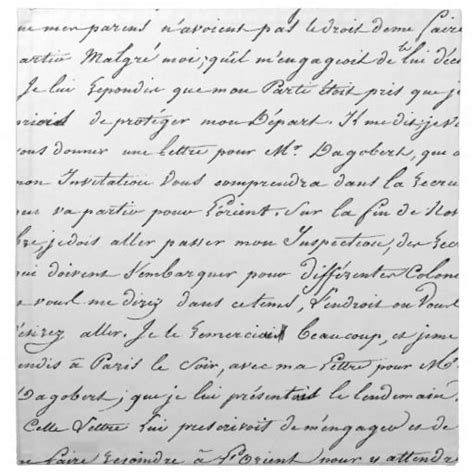 ue mes parens n'avoient pas le droit de me faire
partir Malgré moi; qu'il m'engageoit de lui déc
Je lui Repondis que mon Parti étoit pris que j
de protéger mon Départ. Il me dit; je v
ous donner une Lettre pour Mr. Dagobert, que
mon Invitation Vous comprendra dans la Recrue
ui va partir pour L'orient. Sur la fin de Nov
bre, je dois aller passer mon Inspection, des Rec
ui doivent S'embarquer pour différentes Colon
vous me direz dans ce tems, L'endroit ou Vous
désirez aller. Je le Remerciai Beaucoup, et je me
rendis à Paris le Soir, avec ma Lettre pour Mr
Dagobert, que je lui présentai le lendemain.
Cette Lettre Lui prescrivoit de m'engager et de
me faire Rejoindre à L'Orient pour y attendre